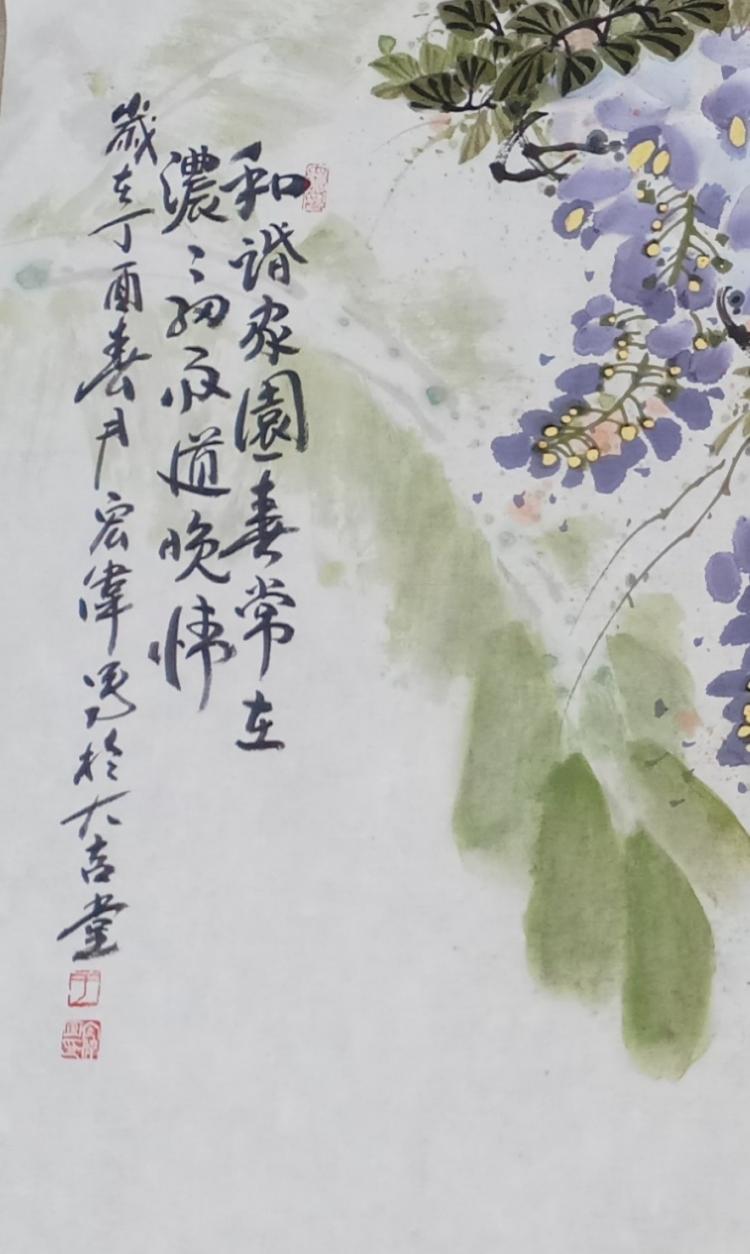 和諧家園春常在
濃〻道晚情
歲在丁酉春月宏偉寫於大吉堂
于